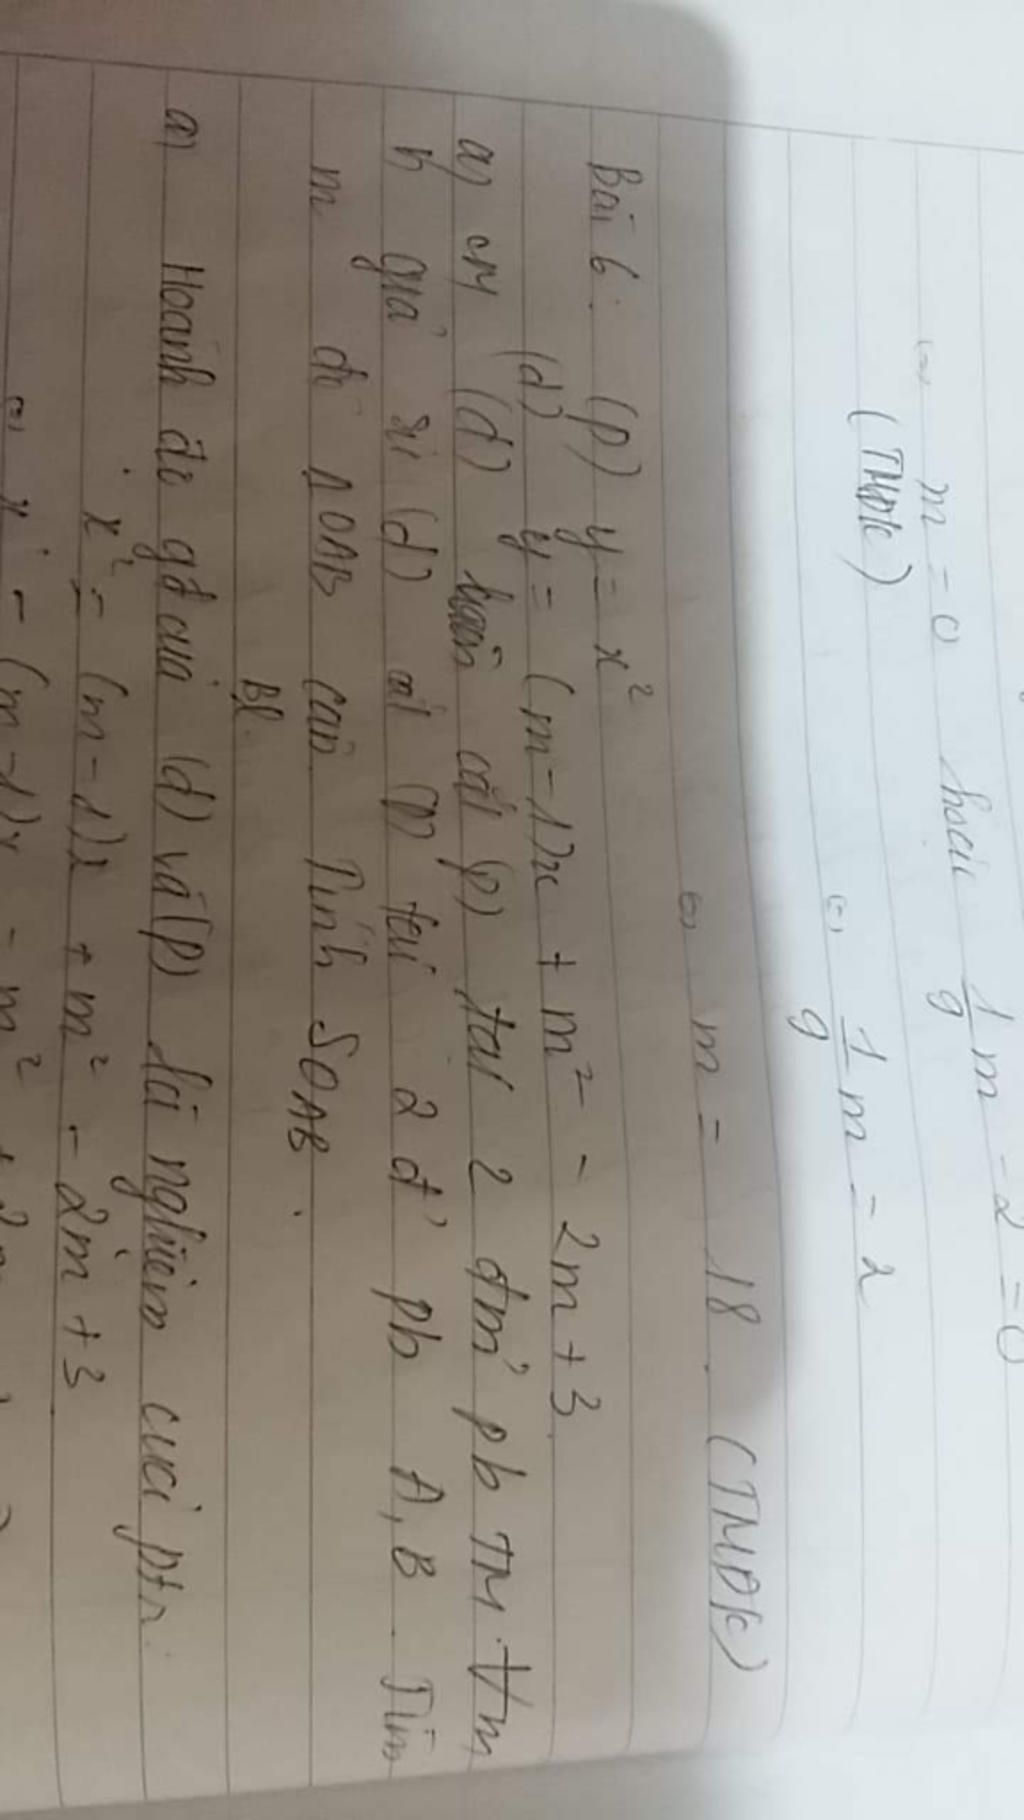 ⇔ m = 0 hoặc 1/9 m - 2 = 0
(TMĐK) ⇔ 1/9 m = 2
⇔ m = 18. (TMĐK)
Bài 6: (P) y = x²
(d) y = (m-1)x + m² - 2m + 3.
a) CM (d) luôn cắt (P) tại 2 điểm pb TM ∀m
b) giả sử (d) cắt (P) tại 2 đ' pb A, B. Tìm
m để ΔOAB cân. Tính SOAB.
BL.
a) Hoành độ gđ của (d) và (P) là nghiệm của ptr.
x² = (m-1)x + m² - 2m + 3
⇔ x² - (m-1)x - m²